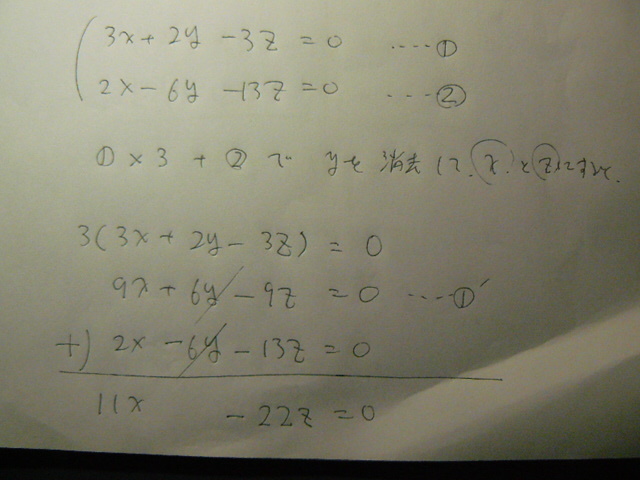 3x + 2y - 3z = 0 ····①
2x - 6y - 13z = 0 ····②
① × 3 + ② で yを 消去して、xとzにすると、
3(3x + 2y - 3z) = 0
9x + 6y - 9z = 0 ····①'
+) 2x - 6y - 13z = 0
11x - 22z = 0